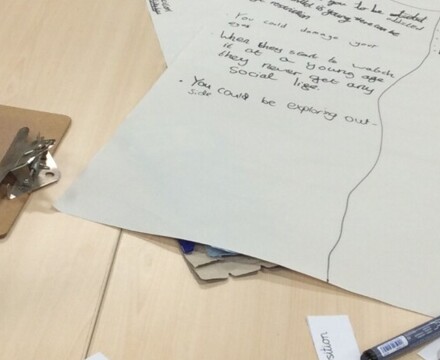 you to be
You could damage your
eyes
• When they start to watch
it at a young age
they never get any
social life.
• You could be exploring out-
side
sition